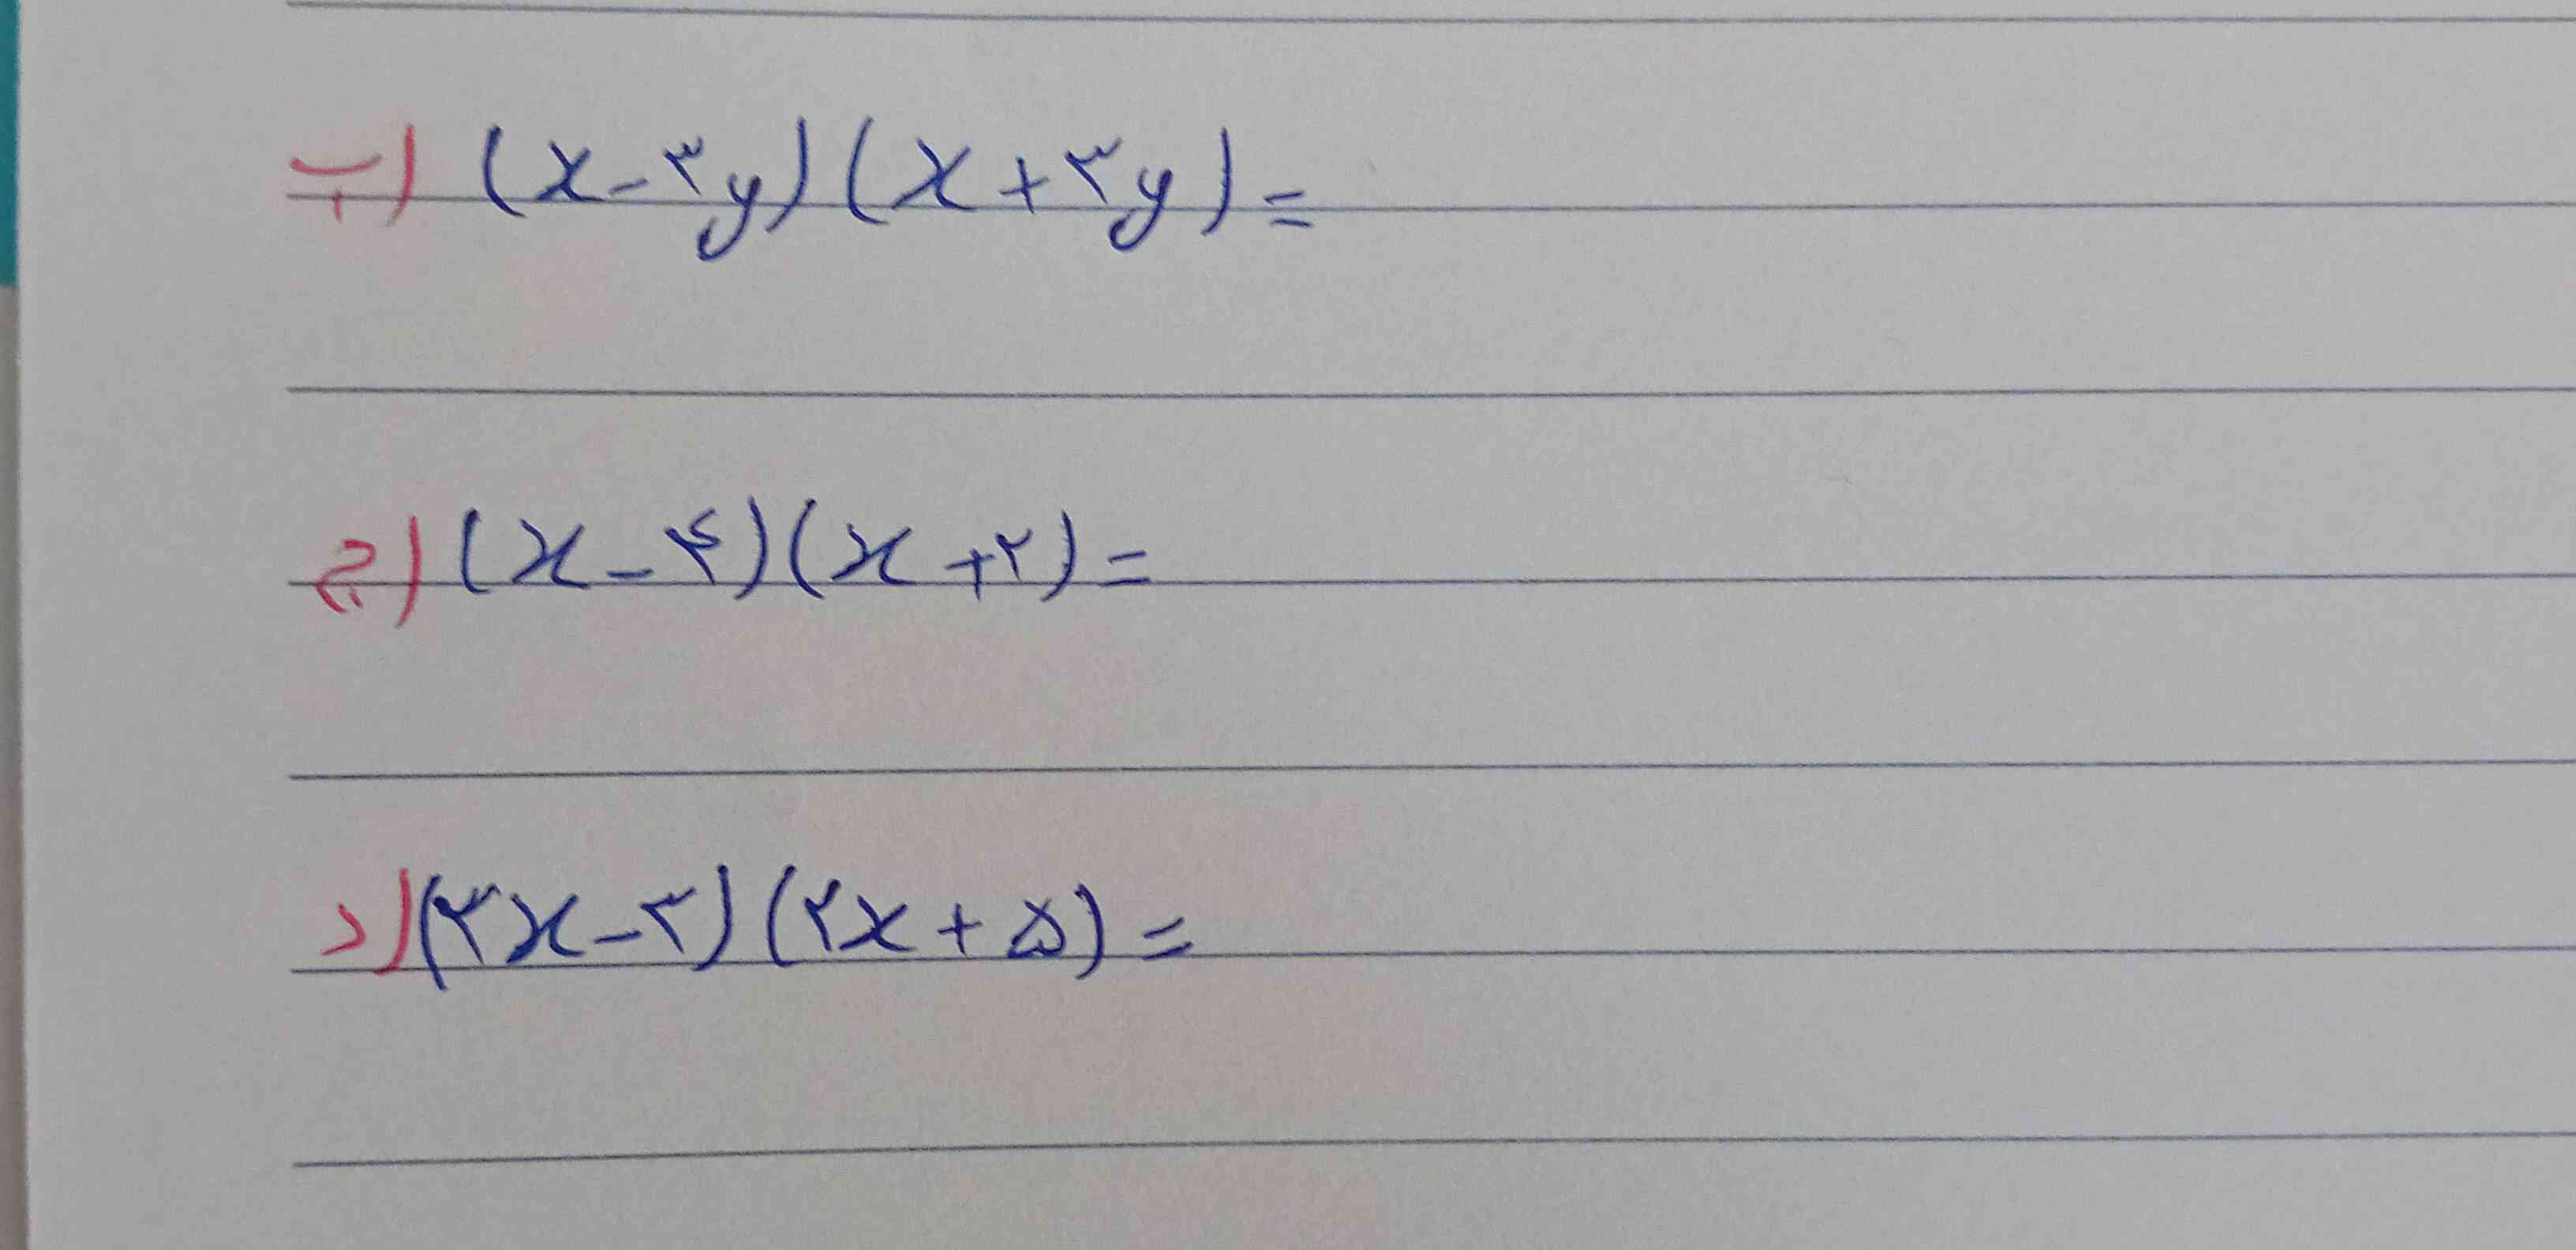 ب) (x-۳y)(x+۳y)=
ج) (x-۴)(x+۲)=
د) (۳x-۲)(۲x+۵)=